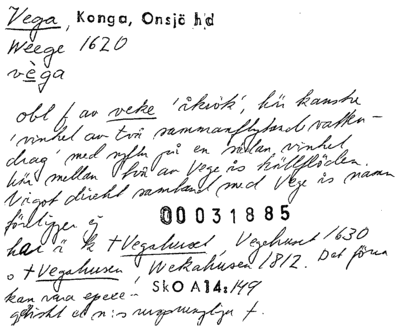 Vega, Konga, Onsjö hd
Weege 1620
vèga
obl f av veke 'åkrök', här kanske
'vinkel av två sammanflytande vatten-
drag' med syftn på en sådan vinkel
här mellan två av Vege ås källflöden.
Något direkt samband med Vege ås namn
föreligger ej
har i k † Vegahuset, Vegehuset 1630
00031885
o † Vegahusen, Wekahusen 1812. Det förra
kan vara
SkO A14:149
n:s ursprungliga f.